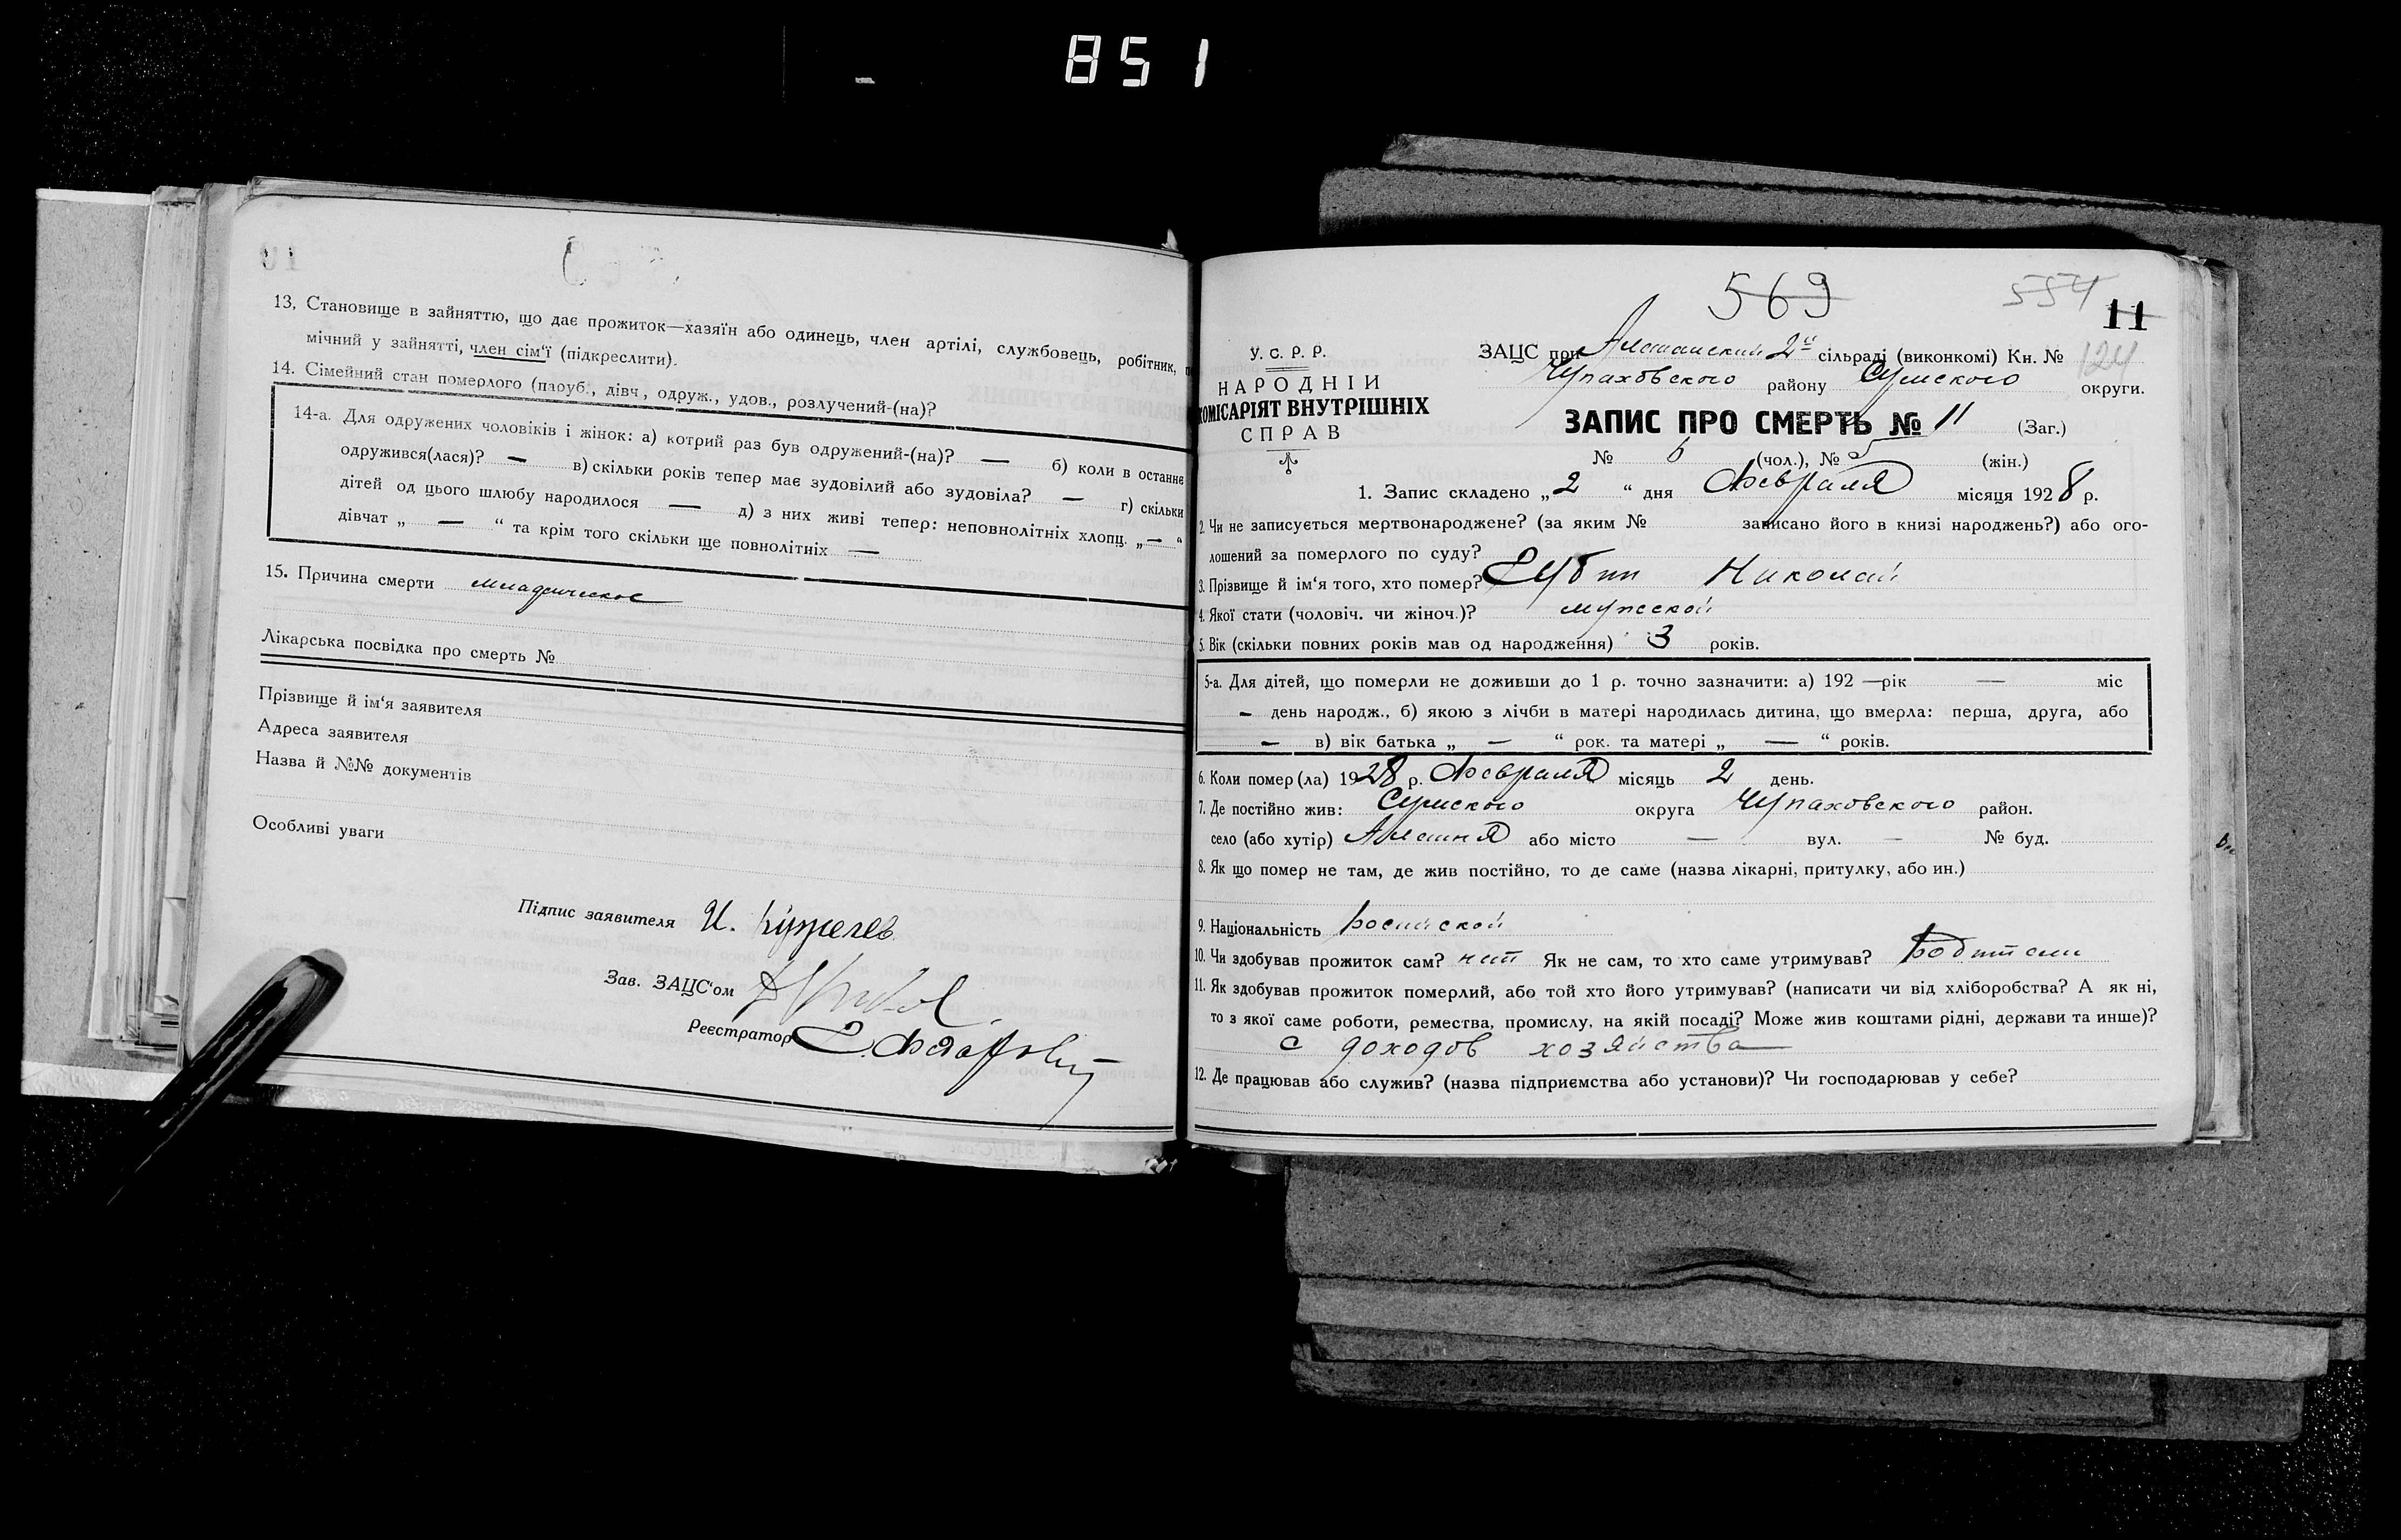 851
13. Становище в зайняттю, що дає прожиток—хазяїн або одинець, член артілі, службовець, робітник,
мічний у зайнятті, член сім'ї (підкреслити).
14. Сімейний стан померлого (паруб., дівч., одруж., удов., розлучений-(на)?
14-а. Для одружених чоловіків і жінок: а) котрий раз був одружений-(на)? — б) коли в останнє
одружився(лася)? — в) скільки років тепер має зудовілий або зудовіла? — г) скільки
дітей од цього шлюбу народилося — д) з них живі тепер: неповнолітніх хлопц. „—“
дівчат „ — “ та крім того скільки ще повнолітніх —
15. Причина смерти младенческое
Лікарська посвідка про смерть №
Прізвище й ім'я заявителя
Адреса заявителя
Назва й №№ документів
Особливі уваги
Підпис заявителя И.
Зав. ЗАЦС'ом
Реєстратор
569
554
11
124
У. С. Р. Р.
НАРОДНІЙ
КОМІСАРІЯТ ВНУТРІШНІХ
СПРАВ
ЗАЦС при 2й сільраді (виконкомі) Кн. №
Чупаховского району Сумского округи.
ЗАПИС ПРО СМЕРТЬ № 11 (Заг.)
№ 6 (чол.), № 5 (жін.)
1. Запис складено „2“ дня Февраля місяця 1928 р.
2. Чи не записується мертвонароджене? (за яким № записано його в книзі народжень?) або ого-
лошений за померлого по суду?
3. Прізвище й ім'я того, хто помер? Губин Николай
4. Якої стати (чоловіч. чи жіноч.)? мужской
5. Вік (скільки повних років мав од народження) 3 років.
5-а. Для дітей, що померли не доживши до 1 р. точно зазначити: а) 192 —рік — міс
— день народж., б) якою з лічби в матері народилась дитина, що вмерла: перша, друга, або
— в) вік батька „ — “ рок. та матері „ — “ років.
6. Коли помер(ла) 1928 р. Февраля місяць 2 день.
7. Де постійно жив: Сумского округа Чупаховского район.
село (або хутір) Алешня або місто — вул. — № буд.
8. Як що помер не там, де жив постійно, то де саме (назва лікарні, притулку, або ин.)
9. Національність Росийской
10. Чи здобував прожиток сам? нит Як не сам, то хто саме утримував? Родители
11. Як здобував прожиток померлий, або той хто його утримував? (написати чи від хліборобства? А як ні,
то з якої саме роботи, ремества, промислу, на якій посаді? Може жив коштами рідні, держави та инше)?
с доходов хозяйства
12. Де працював або служив? (назва підприємства або установи)? Чи господарював у себе?